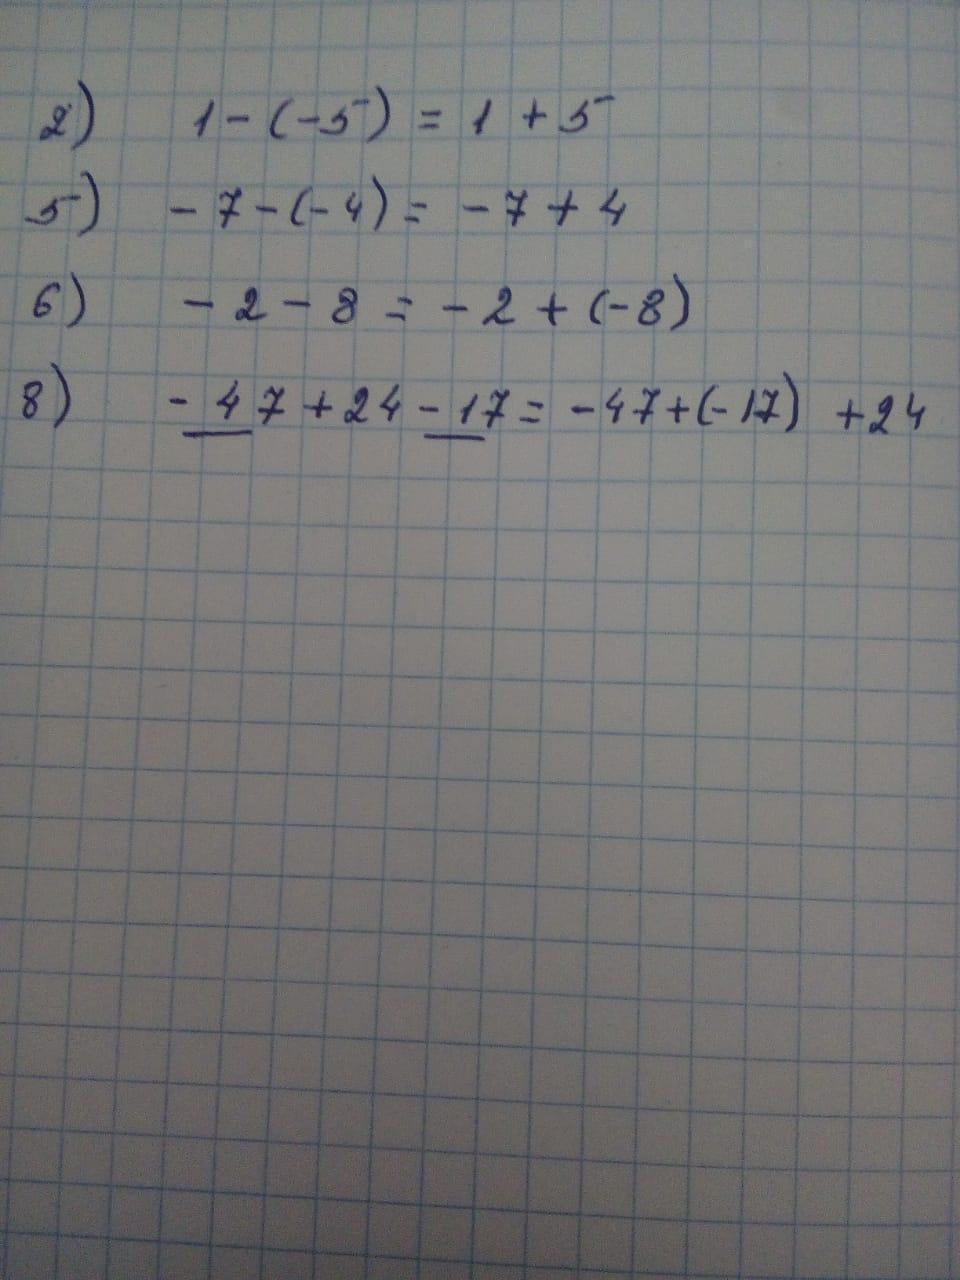 2) 1 - (-5) = 1 + 5
5) - 7 - (- 4) = - 7 + 4
6) - 2 - 8 = - 2 + (- 8)
8) - 47 + 24 - 17 = - 47 + (- 17) + 24